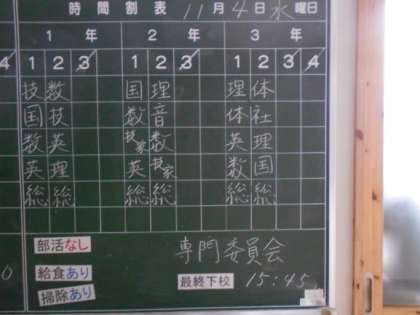 時間割表 11月4日水曜日
1年 2年 3年
4 1 2 3 1 2 3 1 2 3 4
技 数 国 理 理 体
国 技 数 音 体 社
数 英 技家 数 英 理
英 理 英 技家 数 国
総 総 総 総 総 総
部活なし 専門委員会
給食あり 最終下校 15:45
掃除あり